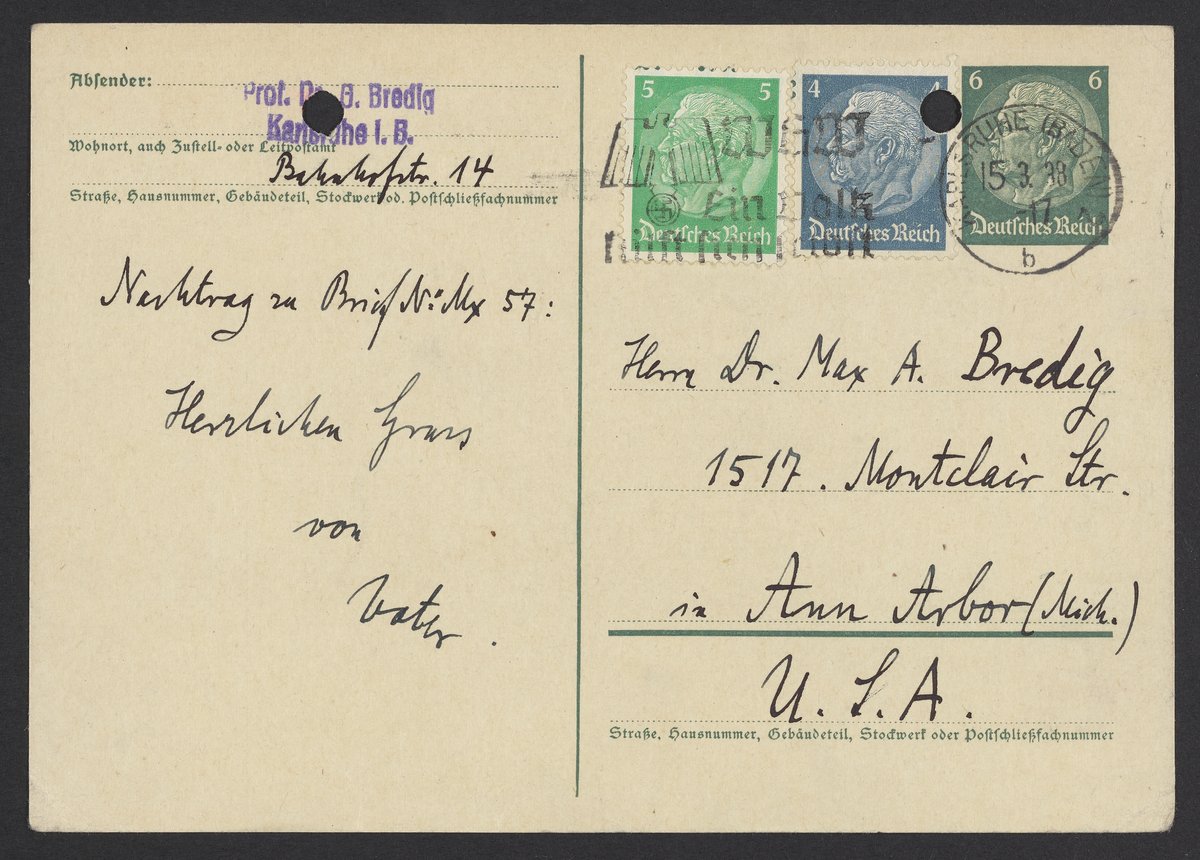 Absender:
Prof. Dr. G. Bredig
Karlsruhe i. B.
Wohnort, auch Zustell- oder Leitpostamt
Bahnhofstr. 14
Straße, Hausnummer, Gebäudeteil, Stockwerk od. Postschließfachnummer
Nachtrag zu Brief No. Mx 57:
Herzlichen Gruss
von
Vater.
5 5
Deutsches Reich
4 4
Deutsches Reich
6 6
Deutsches Reich
WHW
Ein Volk
hilft sich selbst
KARLSRUHE (BADEN)
15.3.38
-17
b
Herrn Dr. Max A. Bredig
1517. Montclair Str.
in Ann Arbor (Mich.)
U.S.A.
Straße, Hausnummer, Gebäudeteil, Stockwerk oder Postschließfachnummer